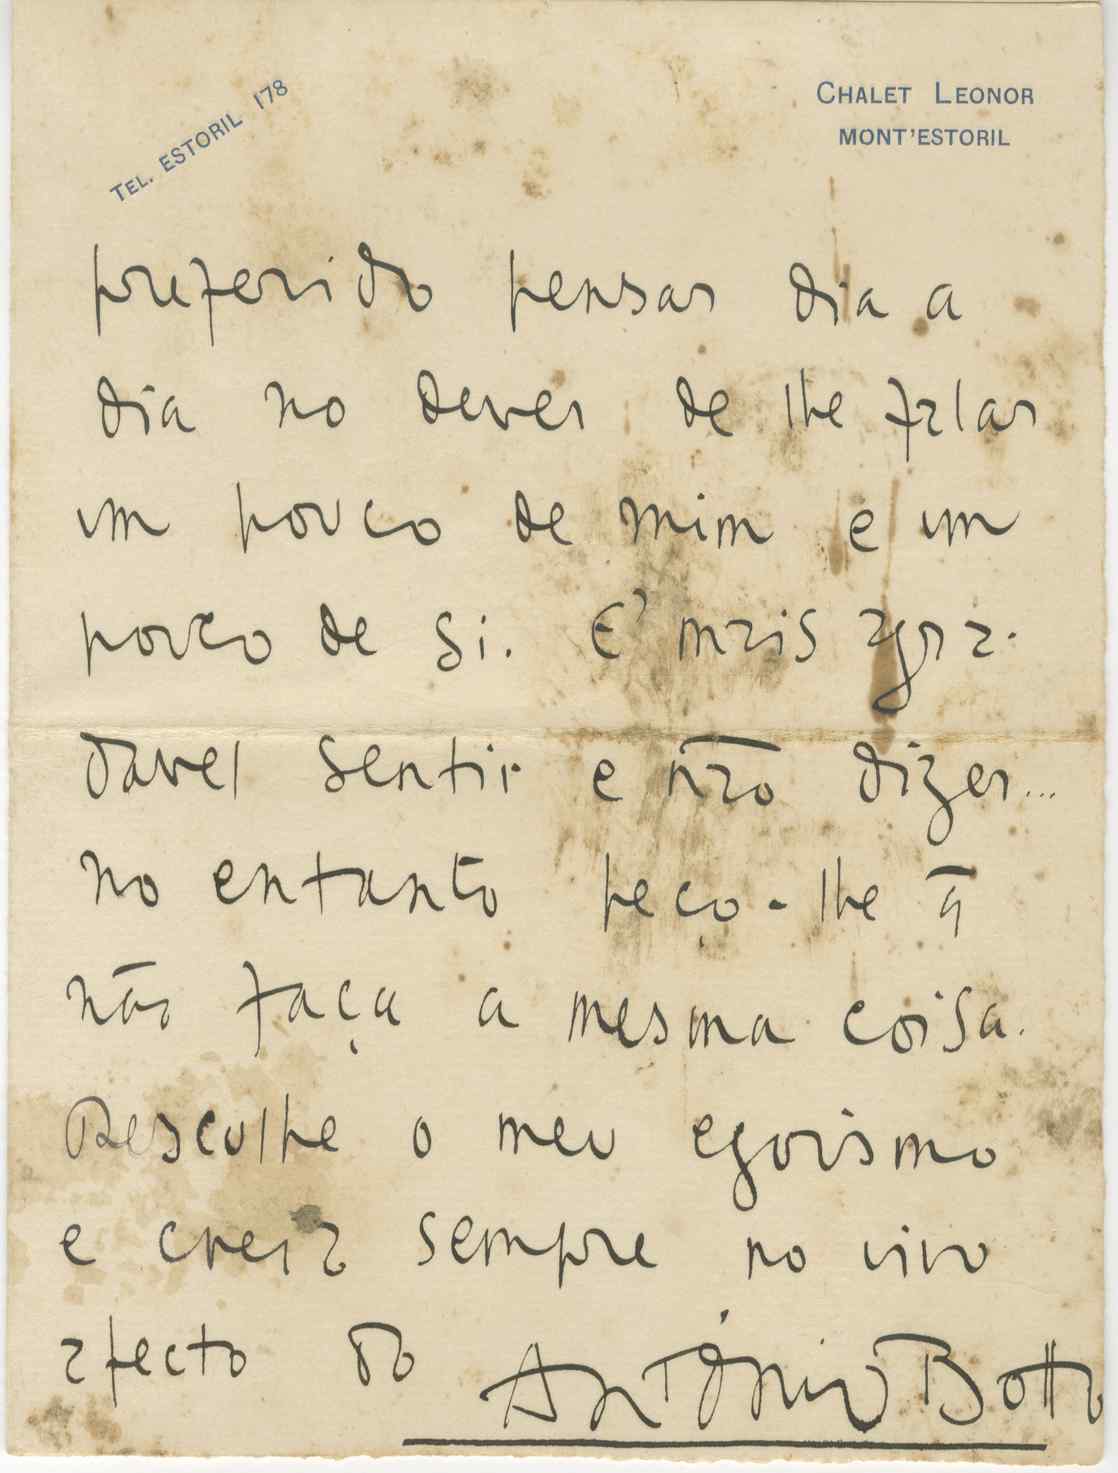 TEL. ESTORIL 178
CHALET LEONOR
MONT'ESTORIL
preferido pensar dia a
dia no dever de lhe falar
um pouco de mim e um
pouco de si. E' mais agra-
davel sentir e não dizer...
no entanto peço-lhe q̄
não faça a mesma coisa.
Desculhe o meu egoismo
e creia sempre no vivo
afecto do António Botto